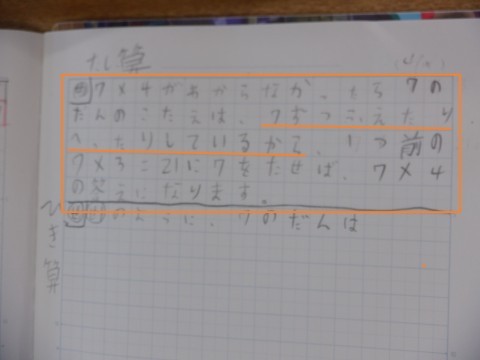 たし算
7×4がわからなか、たら7の
だんのこたえは、7ずつふえたり
へ、たりしているから、1つ前の
7×3=21に7をたせば、7×4
の答えになります。
のように、7のだんは
ひき算